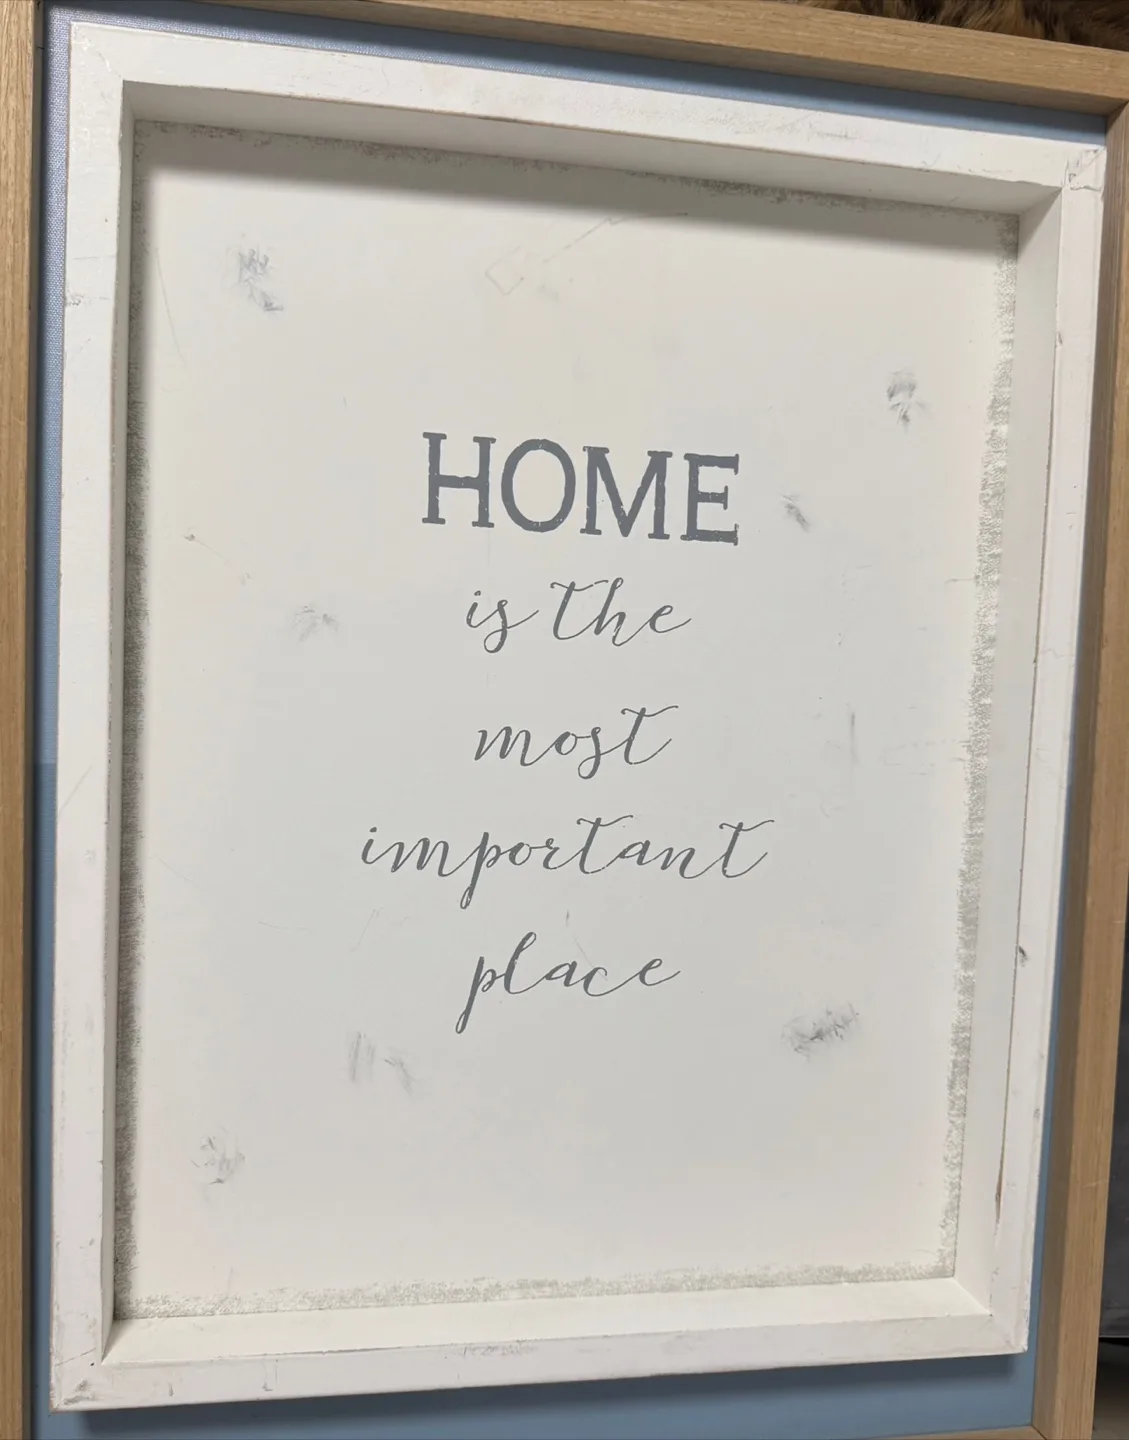 HOME
is the
most
important
place